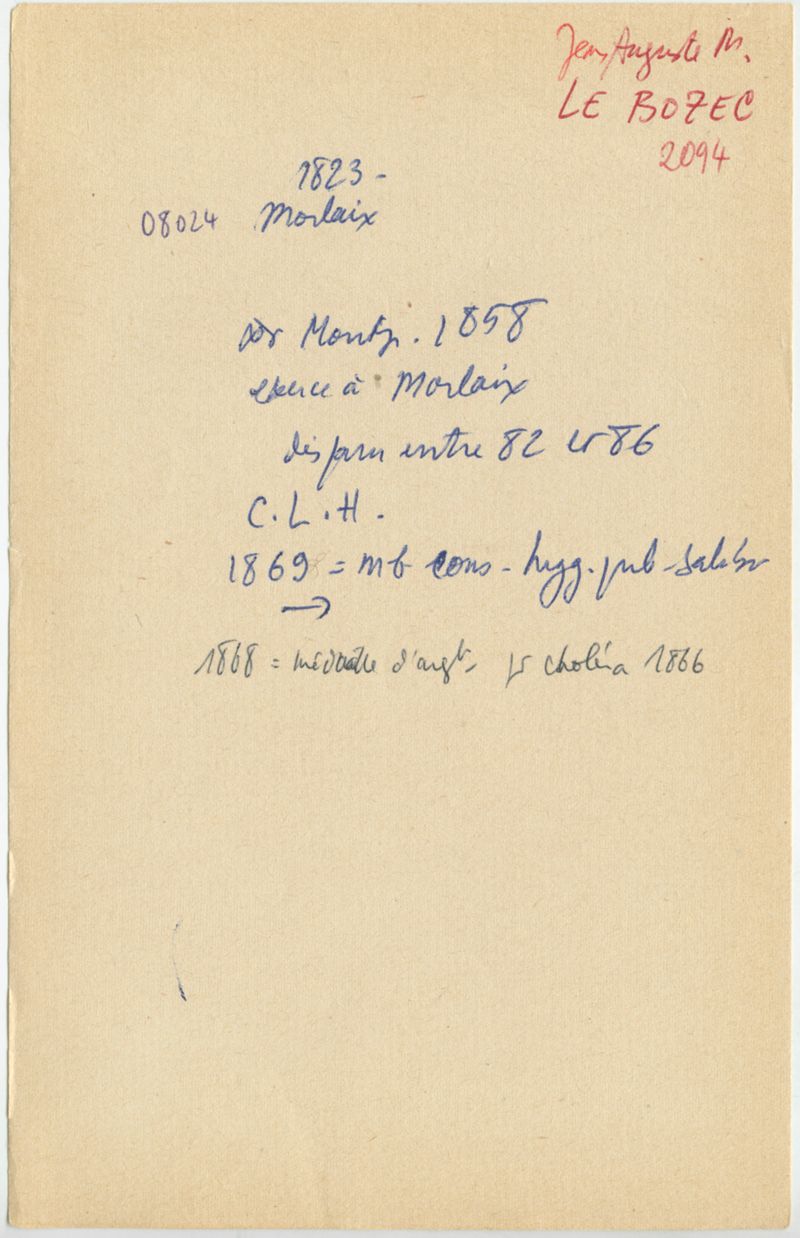 Jean Auguste M.
LE BOZEC
2094
1823 -
08024 Morlaix
Dr Montp. 1858
exerce à Morlaix
disparu entre 82 et 86
C.L.H.
1869 = mb cons - hyg. pub - salubr
→
1868 = médaille d'argt. pr choléra 1866